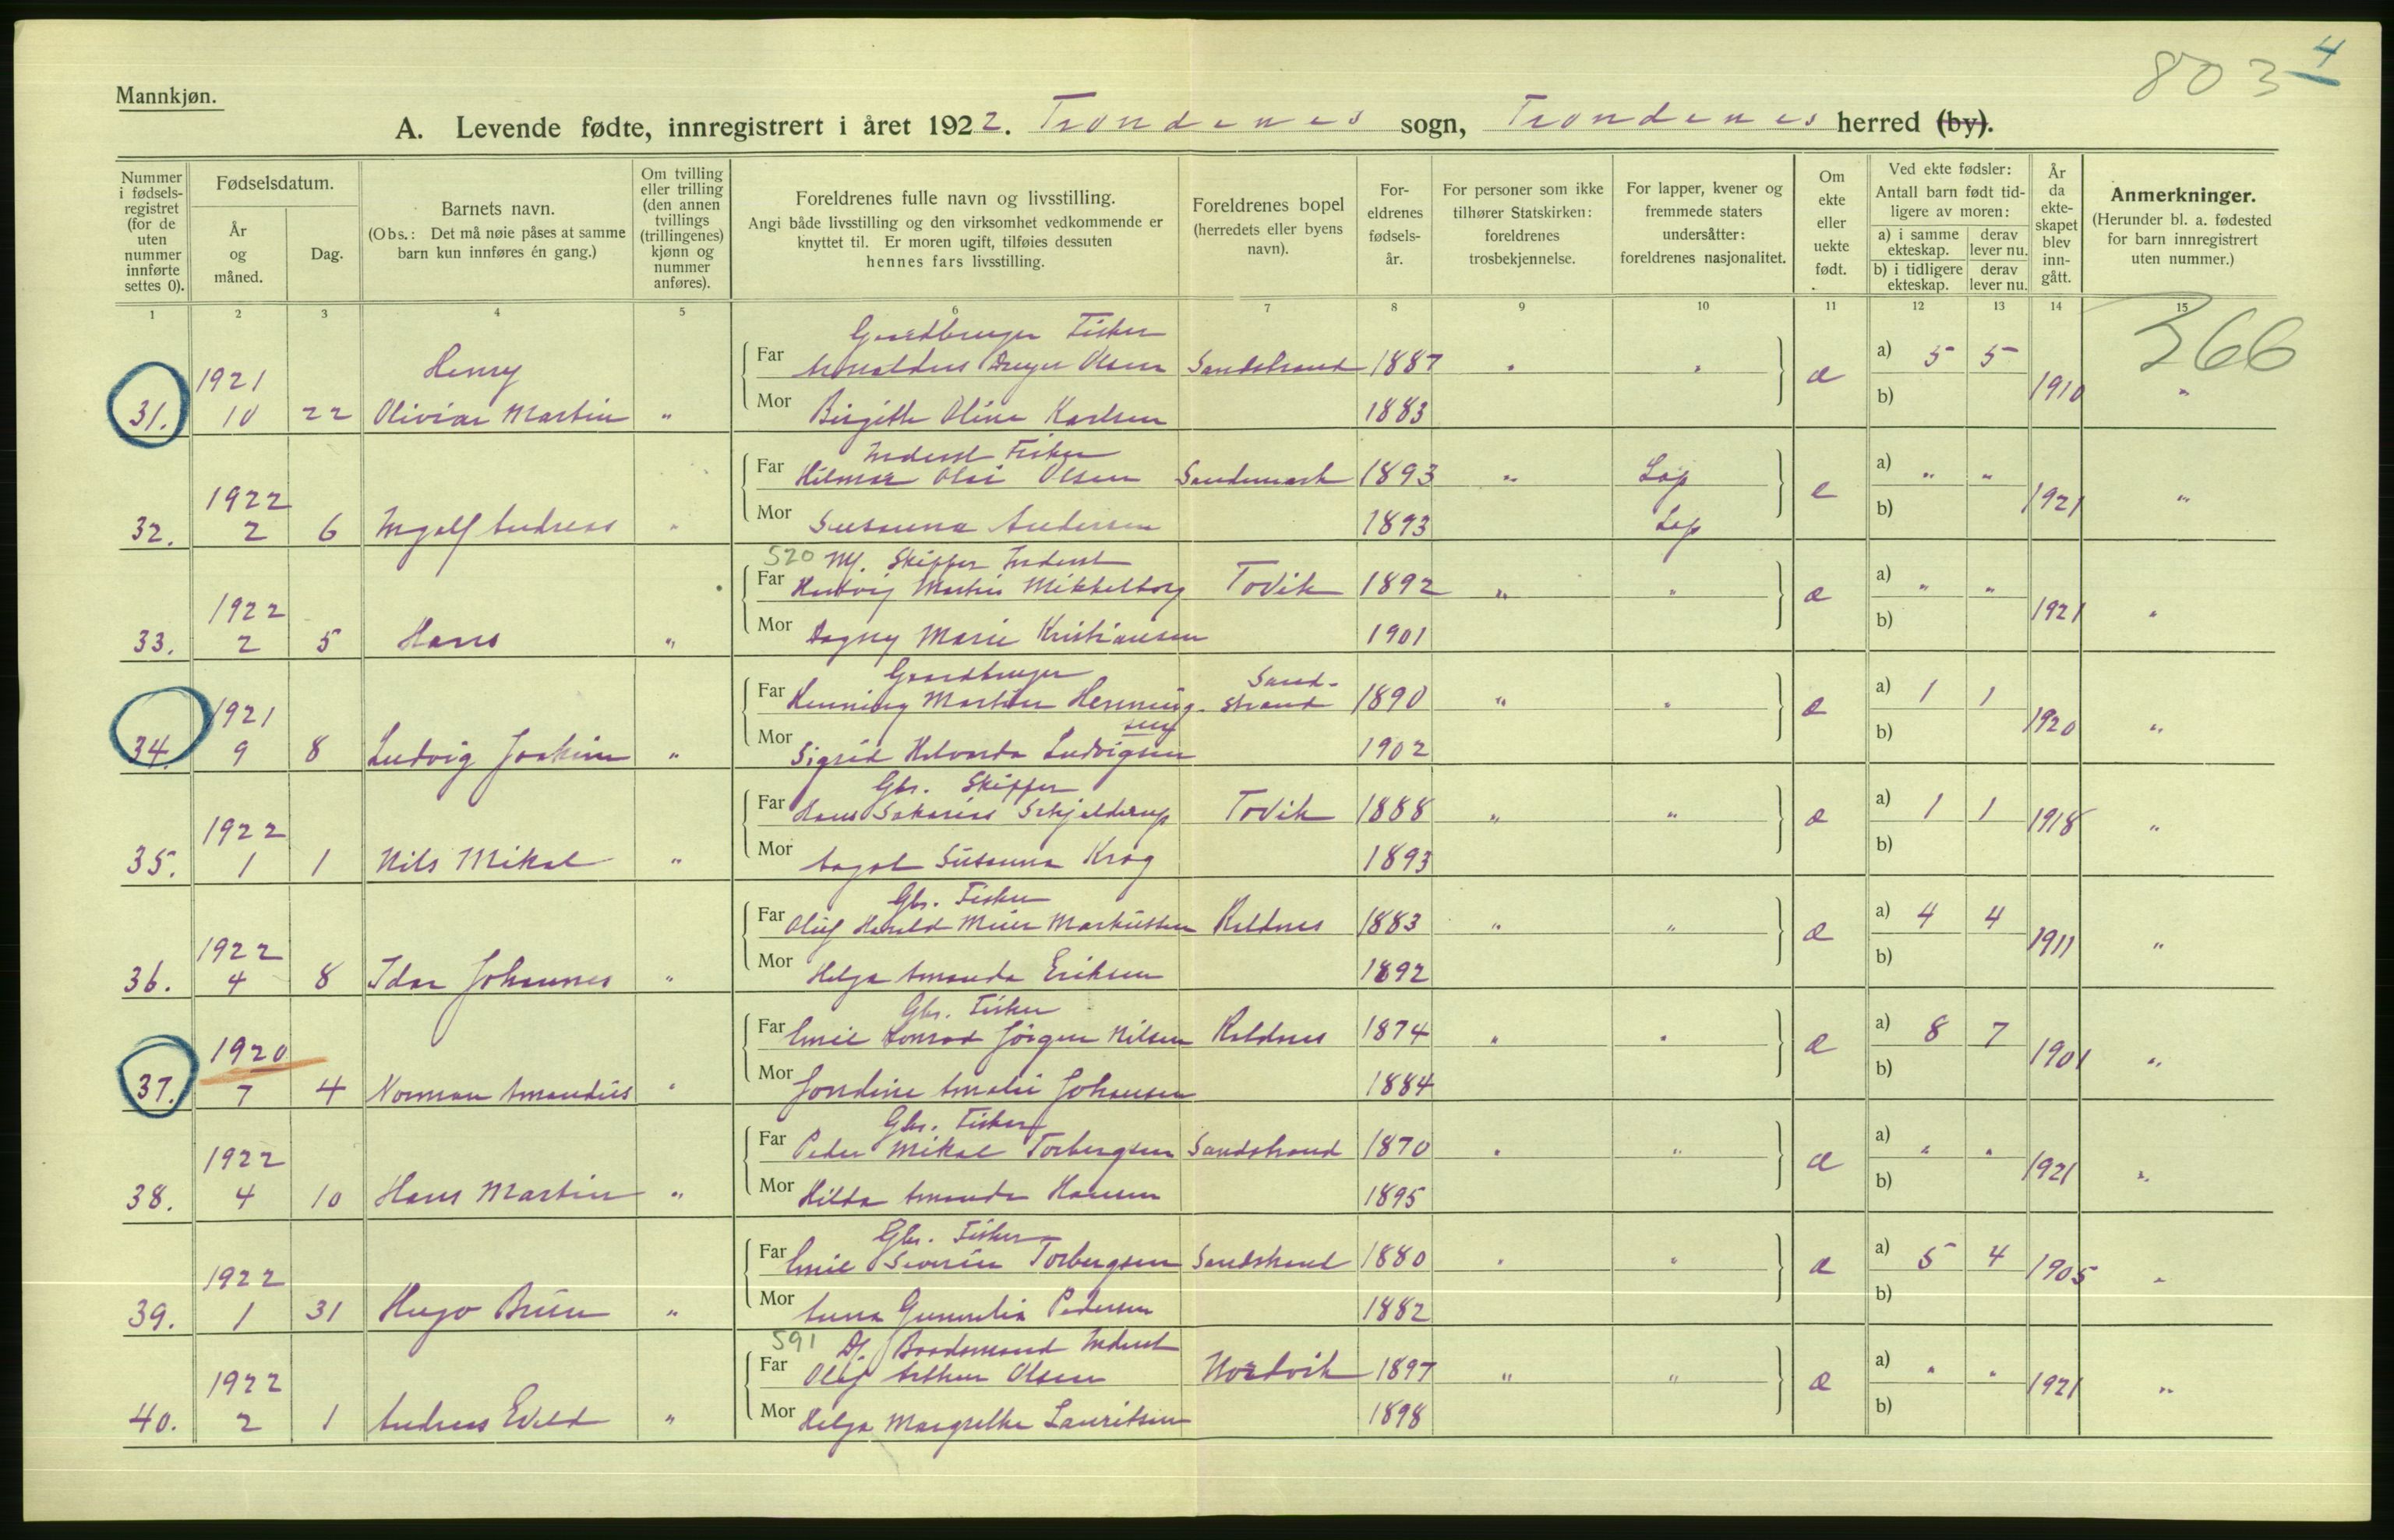 803 4
Mannkjøn.
A. Levende fødte, innregistrert i året 1922. Trondenes sogn, Trondenes herred (by).
Nummer i fødsels-registret (for de uten nummer innførte settes 0).
Fødselsdatum.
År og måned.
Dag.
Barnets navn.
(Obs.: Det må nøie påses at samme barn kun innføres én gang.)
Om tvilling eller trilling (den annen tvillings (trillingenes) kjønn og nummer anføres).
Foreldrenes fulle navn og livsstilling.
Angi både livsstilling og den virksomhet vedkommende er knyttet til. Er moren ugift, tilføies dessuten hennes fars livsstilling.
Foreldrenes bopel (herredets eller byens navn).
For-eldrenes fødsels-år.
For personer som ikke tilhører Statskirken: foreldrenes trosbekjennelse.
For lapper, kvener og fremmede staters undersåtter: foreldrenes nasjonalitet.
Om ekte eller uekte født.
Ved ekte fødsler:
Antall barn født tid-ligere av moren:
a) i samme ekteskap. derav lever nu.
b) i tidligere ekteskap. derav lever nu.
År da ekte-skapet blev inn-gått.
Anmerkninger.
(Herunder bl. a. fødested for barn innregistrert uten nummer.)
1 2 3 4 5 6 7 8 9 10 11 12 13 14 15
366
Gaardbruger Fisker
31. 1921 10 22 Henry Oliviar Martin " Far Arnoldus Dreyer Olsen Sandstrand 1887 " " e a) 5 5 1910 "
Mor Birgitte Oline Karlsen 1883 b)
Inderst Fisker
32. 1922 2 6 Ingolf Andreas " Far Hilmar Olai Olsen Sandemark 1893 " Lap e a) " " 1921 "
Mor Susanna Andersen 1893 Lap b)
520 Mf. Skipper Inderst
33. 1922 2 5 Hans " Far Hartvig Martin Mikkelborg Tovik 1892 " " e a) " " 1921 "
Mor Dagny Marie Kristiansen 1901 b)
Gaardbruger
34. 1921 9 8 Ludvig Joakim " Far Henning Martin Henningsen Sandstrand 1890 " " e a) 1 1 1920 "
Mor Sigrid Halvarda Ludvigsen 1902 b)
Gbr. Skipper
35. 1922 1 1 Nils Mikal " Far Hans Sakarias Schjelderup Tovik 1888 " " e a) 1 1 1918 "
Mor Aagot Susanna Krog 1893 b)
Gbr. Fisker
36. 1922 4 8 Idar Johannes " Far Oluf Harald Meier Markussen Keldnes 1883 " " e a) 4 4 1911 "
Mor Helga Amanda Eriksen 1892 b)
Gbr. Fisker
37. 1920 7 4 Norman Amandus " Far Emil Konrad Jörgen Nilsen Keldnes 1874 " " e a) 8 7 1901 "
Mor Jordine Amalie Johansen 1884 b)
Gbr. Fisker
38. 1922 4 10 Hans Martin " Far Peder Mikal Torbergsen Sandstrand 1870 " " e a) " " 1921 "
Mor Hilda Amanda Hansen 1895 b)
Gbr. Fisker
39. 1922 1 31 Hugo Brun " Far Emil Severin Torbergsen Sandstrand 1880 " " e a) 5 4 1905 "
Mor Anna Gunnelia Pedersen 1882 b)
591 Df. Baadsmand Inderst
40. 1922 2 1 Andreas Evald " Far Olaf Arthur Olsen Nordvik 1897 " " e a) " " 1921 "
Mor Helga Margrethe Lauritsen 1898 b)